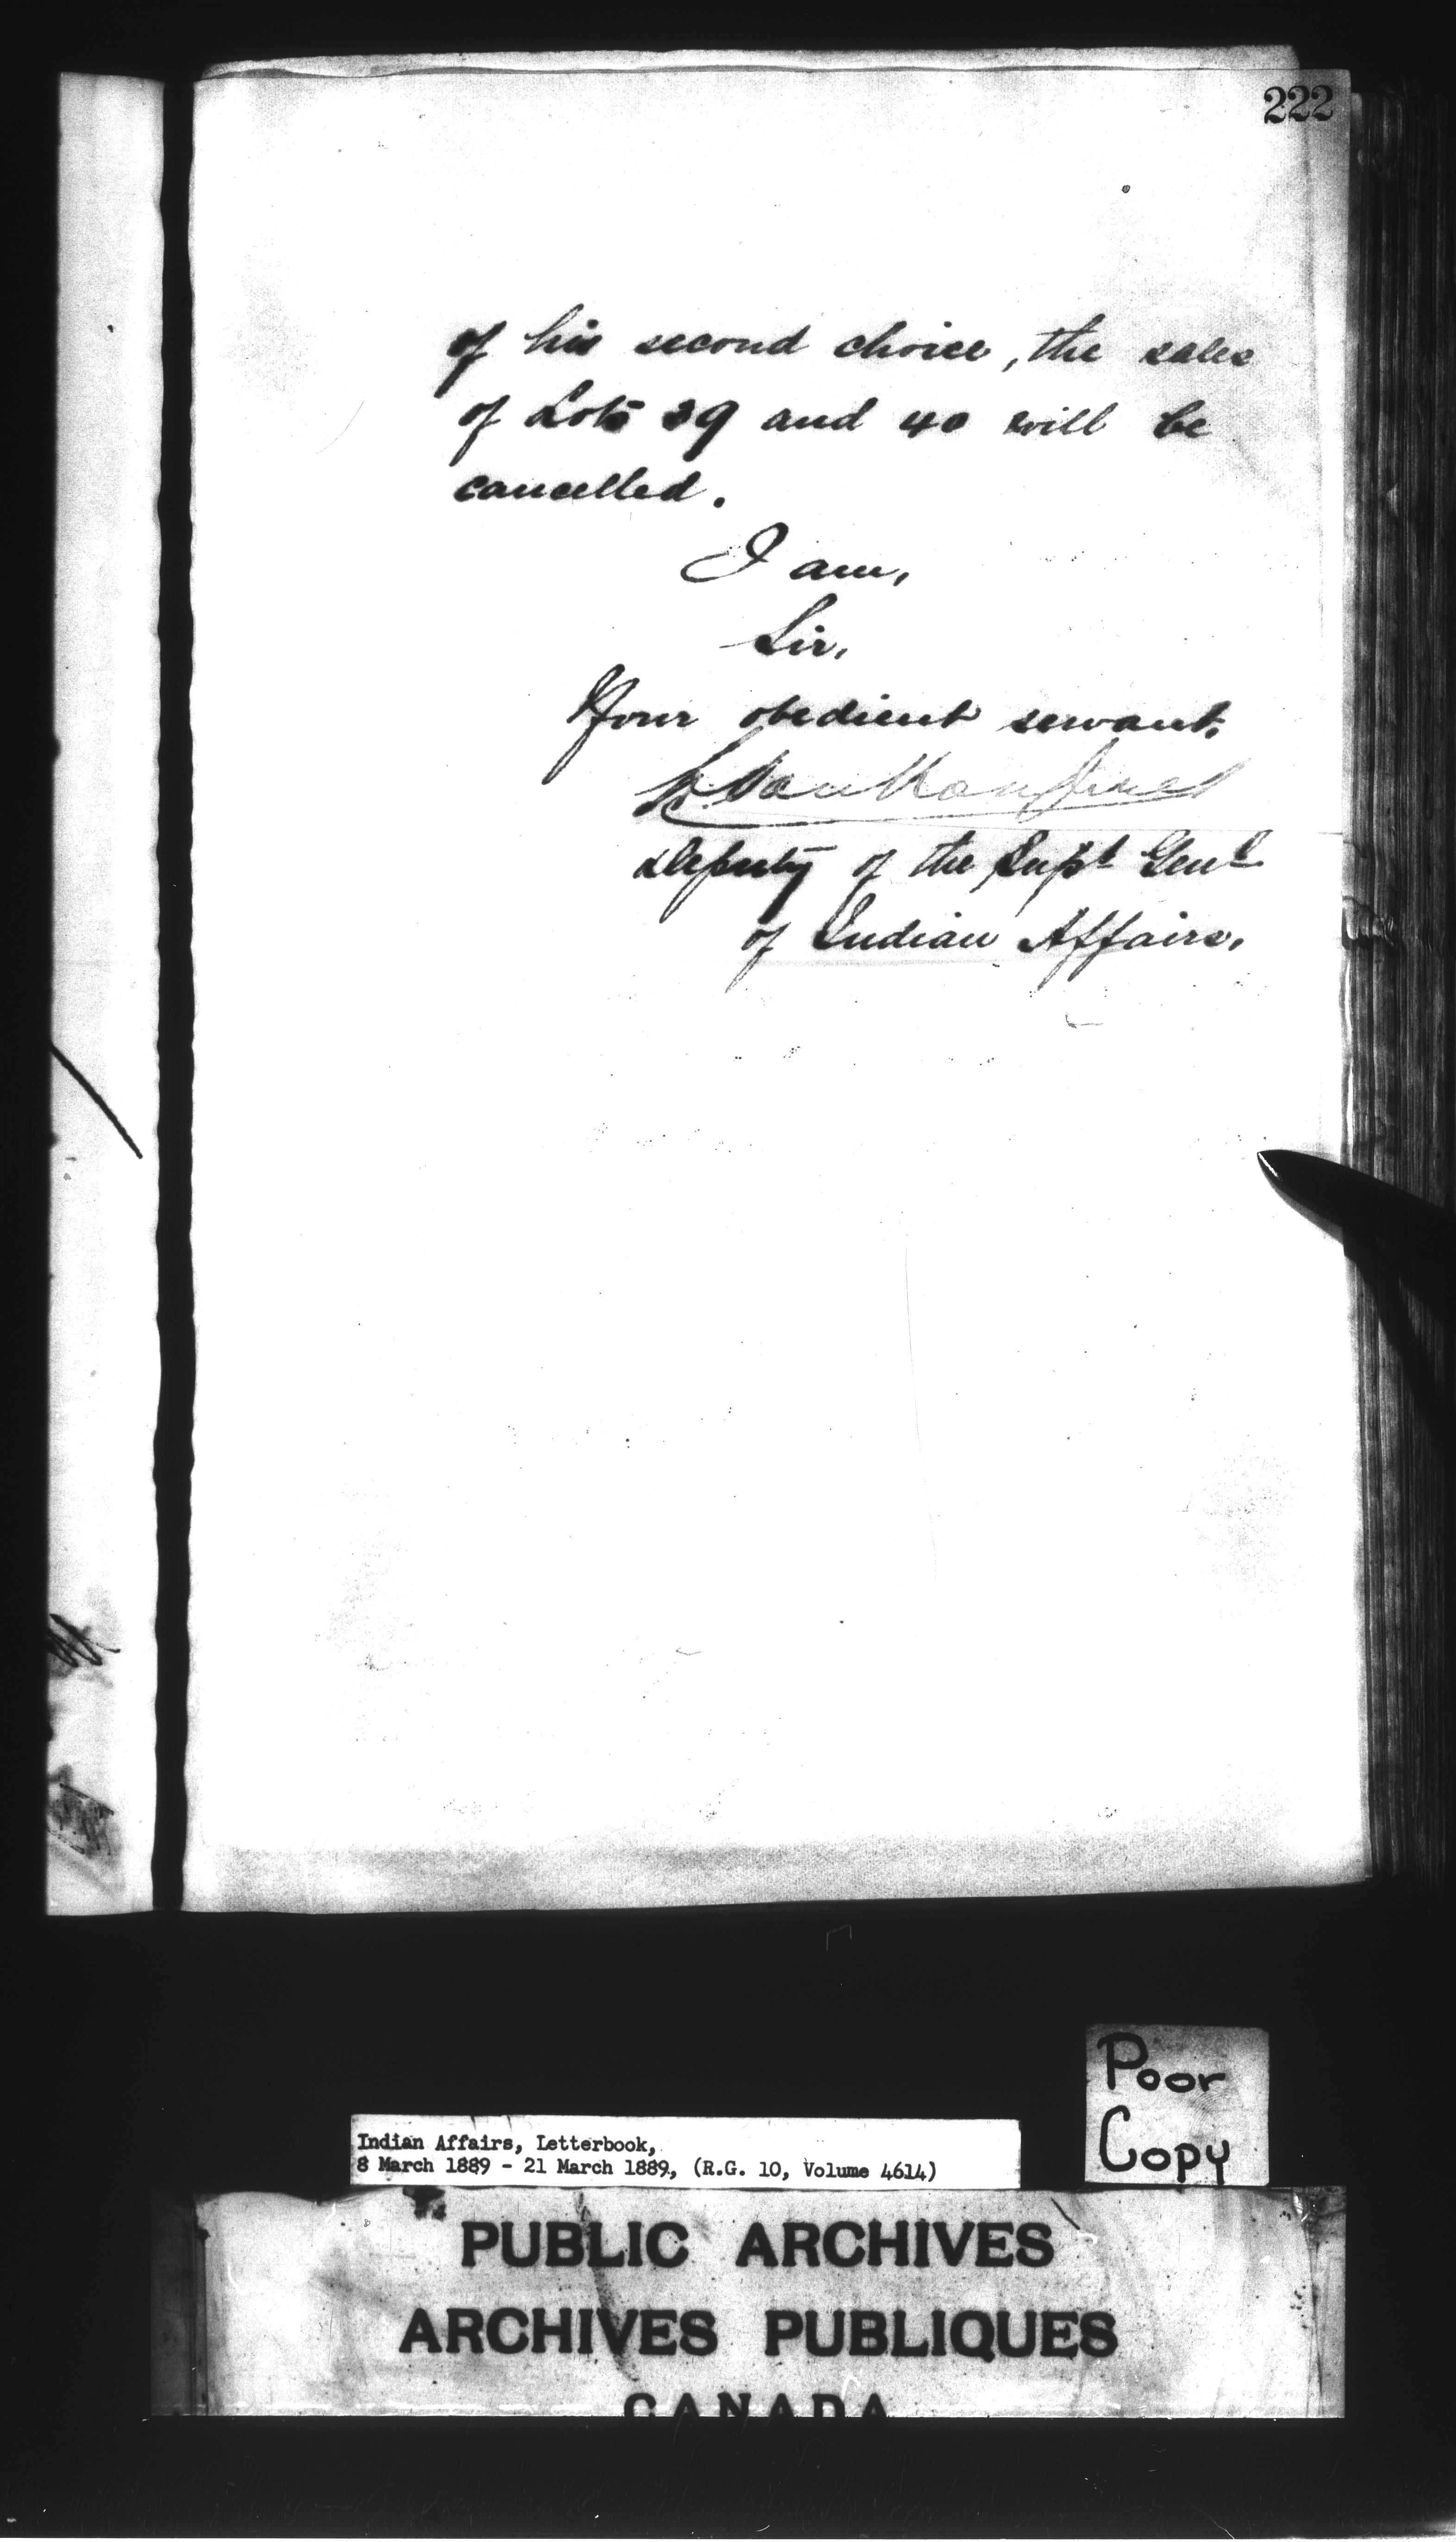 222
of his second choice, the sales
of Lots 39 and 40 will be
cancelled.
I am,
Sir,
Your obedient servant,
L. VanKoughnet
Deputy of the Supt Genl
of Indian Affairs.
Poor
Copy
Indian Affairs, Letterbook,
8 March 1889 - 21 March 1889, (R.G. 10, Volume 4614)
PUBLIC ARCHIVES
ARCHIVES PUBLIQUES
CANADA